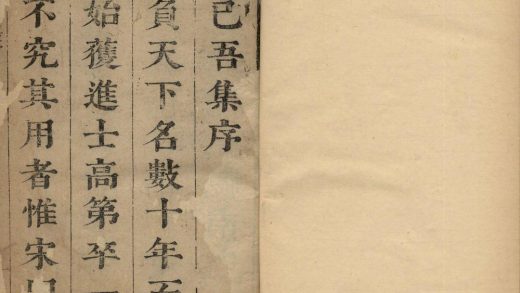 已吾集序
負天下名數十年
始獲進士高第卒
不究其用者惟宋